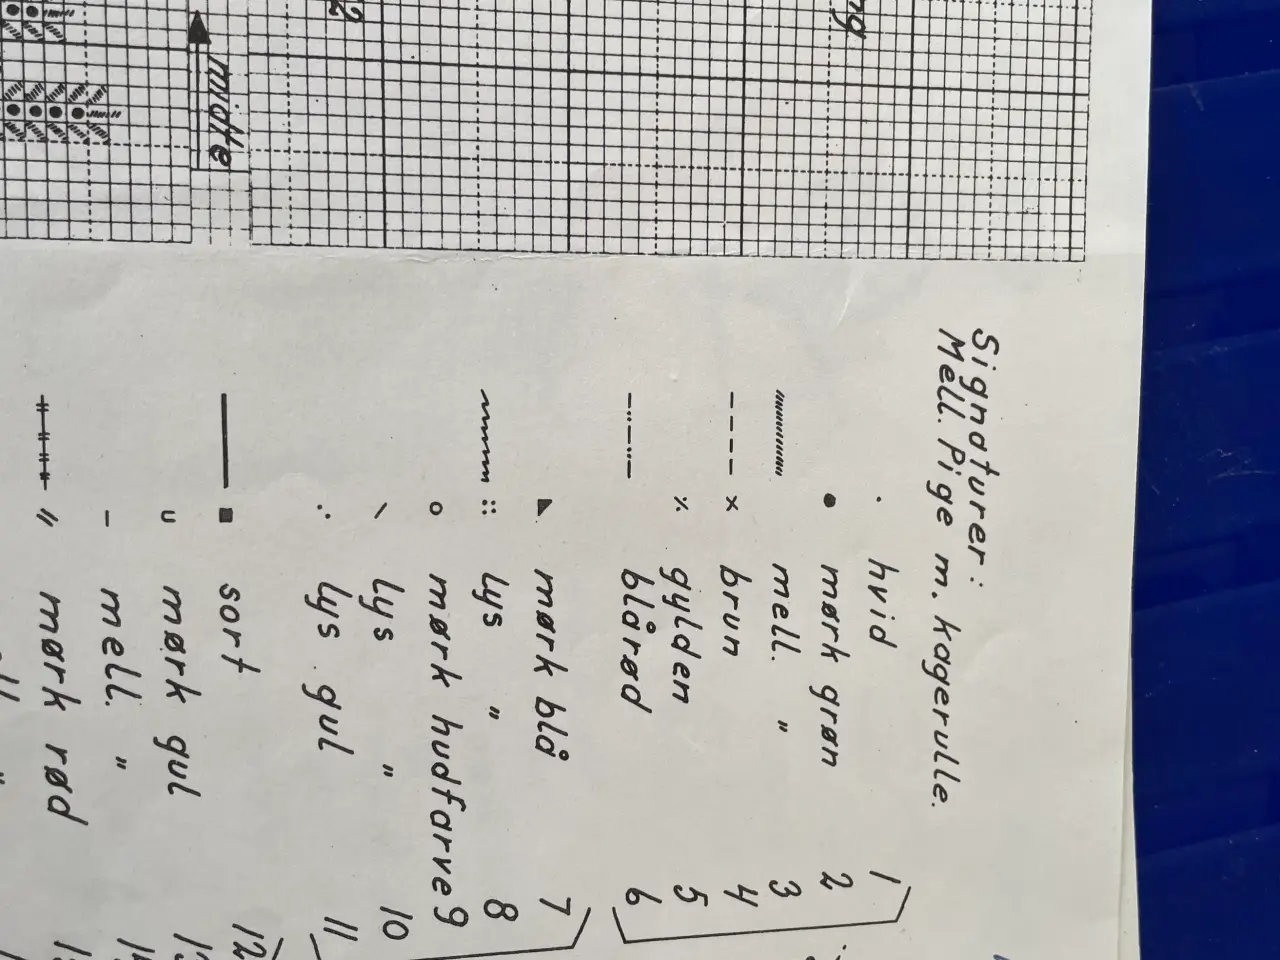 Signaturer:
Mell. Pige m. kagerulle.
· hvid 1
● mørk grøn 2
mell. " 3
x brun 4
٪ gylden 5
blårød 6
◣ mørk blå 7
:: lys " 8
o mørk hudfarve 9
\ lys " 10
∴ lys gul 11
■ sort 12
u mørk gul
– mell. "
" mørk rød
midte
2